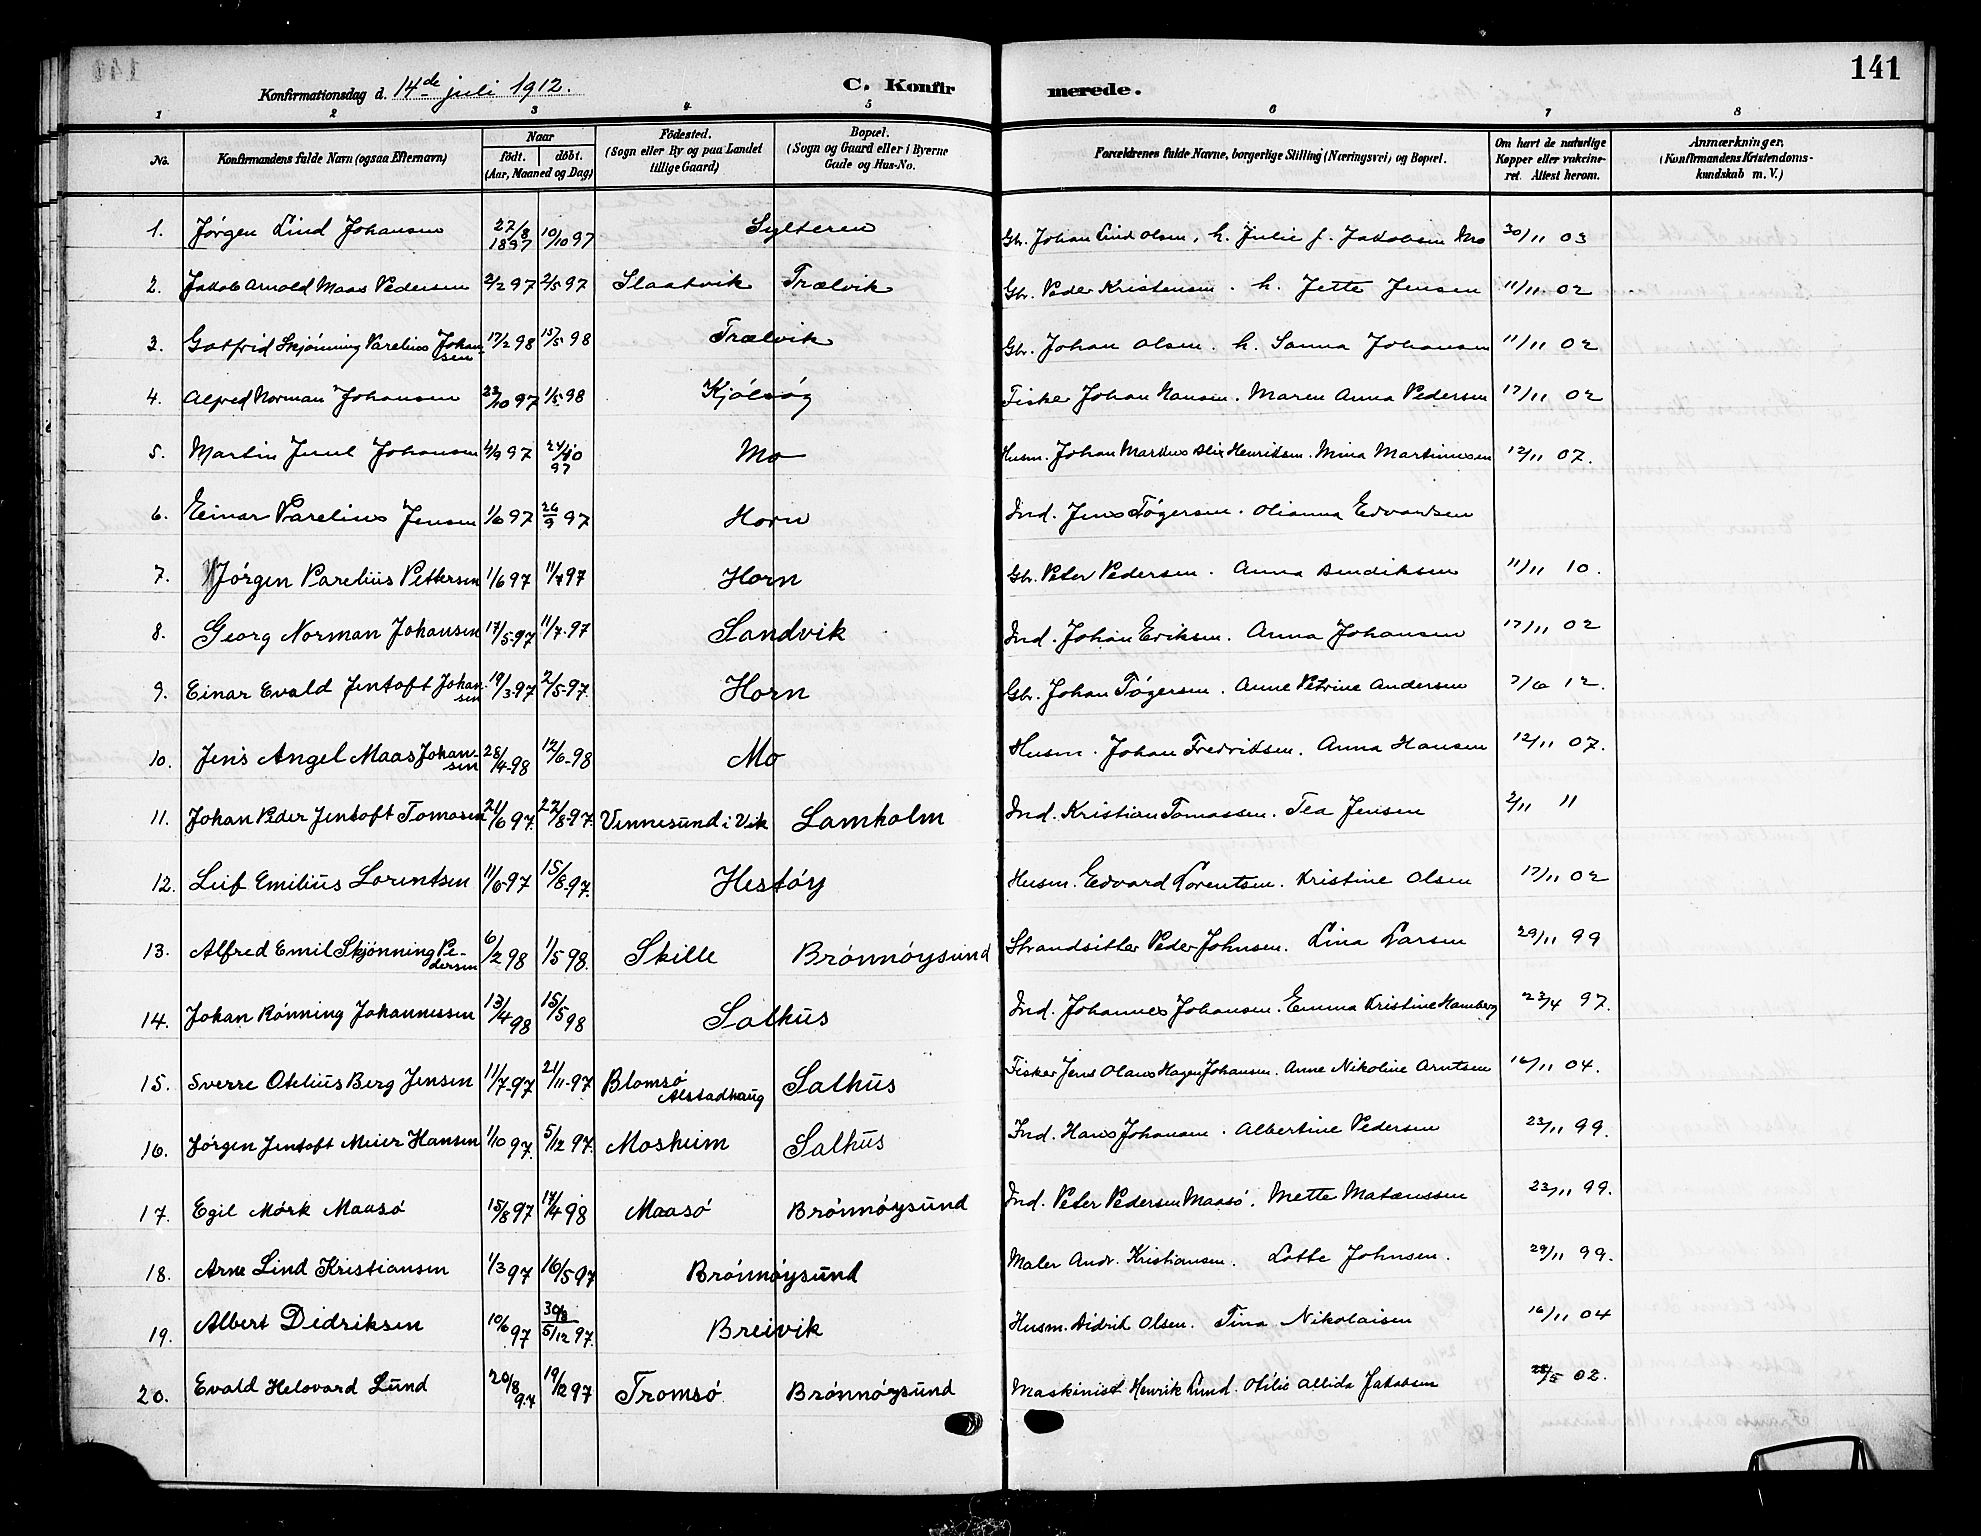 141
Konfirmationsdag d. 14de juli 1912.
C. Konfirmerede.
1 2 3 4 5 6 7 8
No.
Konfirmandens fulde Navn (ogsaa Efternavn)
Naar
födt. döbt.
(Aar, Maaned og Dag)
Födested.
(Sogn eller By og paa Landet
tillige Gaard)
Bopæl.
(Sogn og Gaard eller i Byerne
Gade og Hus-No.
Forældrenes fulde Navne, borgerlige Stilling (Næringsvei) og Bopæl.
Om havt de naturlige
Kopper eller vakcine-
ret. Attest herom.
Anmærkninger,
(Konfirmandens Kristendoms-
kundskab m. V.)
1. Jørgen Lind Johansen 22/8 1897 10/10 97 Sylteren Gbr. Johan Lind Olsen, h. Julie f. Jakobsen Mo 30/11 03
2. Jakob Arnold Maas Pedersen 2/2 97 2/5 97 Slaatvik Trælvik Gbr. Peder Kristensen. h. Jette Jensen 11/11 02
3. Gotfrid Skjönning Parelius Johansen 17/2 98 15/5 98 Trælvik Gbr. Johan Olsen. h. Sanna Johansen 11/11 02
4. Alfred Norman Johansen 23/10 97 1/5 98 Kjølsøy Fisker Johan Hansen. Maren Anna Pedersen 17/11 02
5. Martin Juul Johansen 4/9 97 24/10 97 Mo Husm. Johan Markus Blix Henriksen. Mina Martinussen 12/11 07.
6. Einar Parelius Jensen 1/6 97 26/9 97 Horn Ind. Jens Tøgersen. Olianna Edvardsen
7. Jørgen Parelius Pettersen 1/6 97 11/7 97 Horn Gbr. Peter Pedersen. Anna Bendiksen 11/11 10.
8. Georg Norman Johansen 17/5-97 11/7-97 Sandvik Ind. Johan Eriksen. Anna Johansen 17/11 02
9. Einar Evald Jentoft Johansen 19/3-97 2/5-97. Horn Gbr. Johan Tøgersen. Anne Petrine Andersen 7/6 12.
10. Jens Angel Maas Johansen 28/4-98 12/6-98 Mo Husm. Johan Fredriksen. Anna Hansen 12/11 07.
11. Johan Peder Jentoft Tomasen 21/6 97. 22/8-97. Vennesund i Vik Lamholm Ind. Kristian Tomassen. Tea Jensen 2/11 11
12. Leif Emilius Lorentsen 11/6-97 15/8-97. Hestøy Husm. Edvard Lorentsen. Kristine Olsen 17/11 02
13. Alfred Emil Skjønning Pedersen 6/2 98 1/5 98. Skille Brønnøysund Strandsitter Peder Johnsen. Lina Larsen 29/11 99
14. Johan Rønning Johannessen 13/4 98 15/5 98 Salhus Ind. Johannes Johansen. Emma Kristine Hamberg 23/4 97.
15. Sverre Otelius Berg Jensen 11/7-97 21/11-97 Blomsø Alstadhaug Salhus Fisker Jens Olaus Hagen Johansen. Anne Nikoline Arntsen 16/11 04.
16. Jørgen Jentoft Meier Hansen 1/10 97. 5/12 97. Mosheim Salhus Ind. Hans Johansen. Albertine Pedersen 23/11 99.
17. Egil Mørk Maasø 15/8 97 17/4 98 Maasø Brønnøysund Ind. Peter Pedersen Maasø. Mette Matæussen 23/11 99.
18. Arne Lind Kristiansen 1/3 97 16/5-97 Brønnøysund Maler Andr. Kristiansen. Lotte Johnsen. 29/11 99.
19. Albert Didriksen 10/6 97 5/12 97. Breivik Husm. Didrik Olsen. Tina Nikolaisen 16/11 04
20. Evald Helovard Lund 20/8 97 19/12 97 Tromsø Brønnøysund Maskinist Henrik Lund. Otilie Allida Jakobsen 28/5 02.